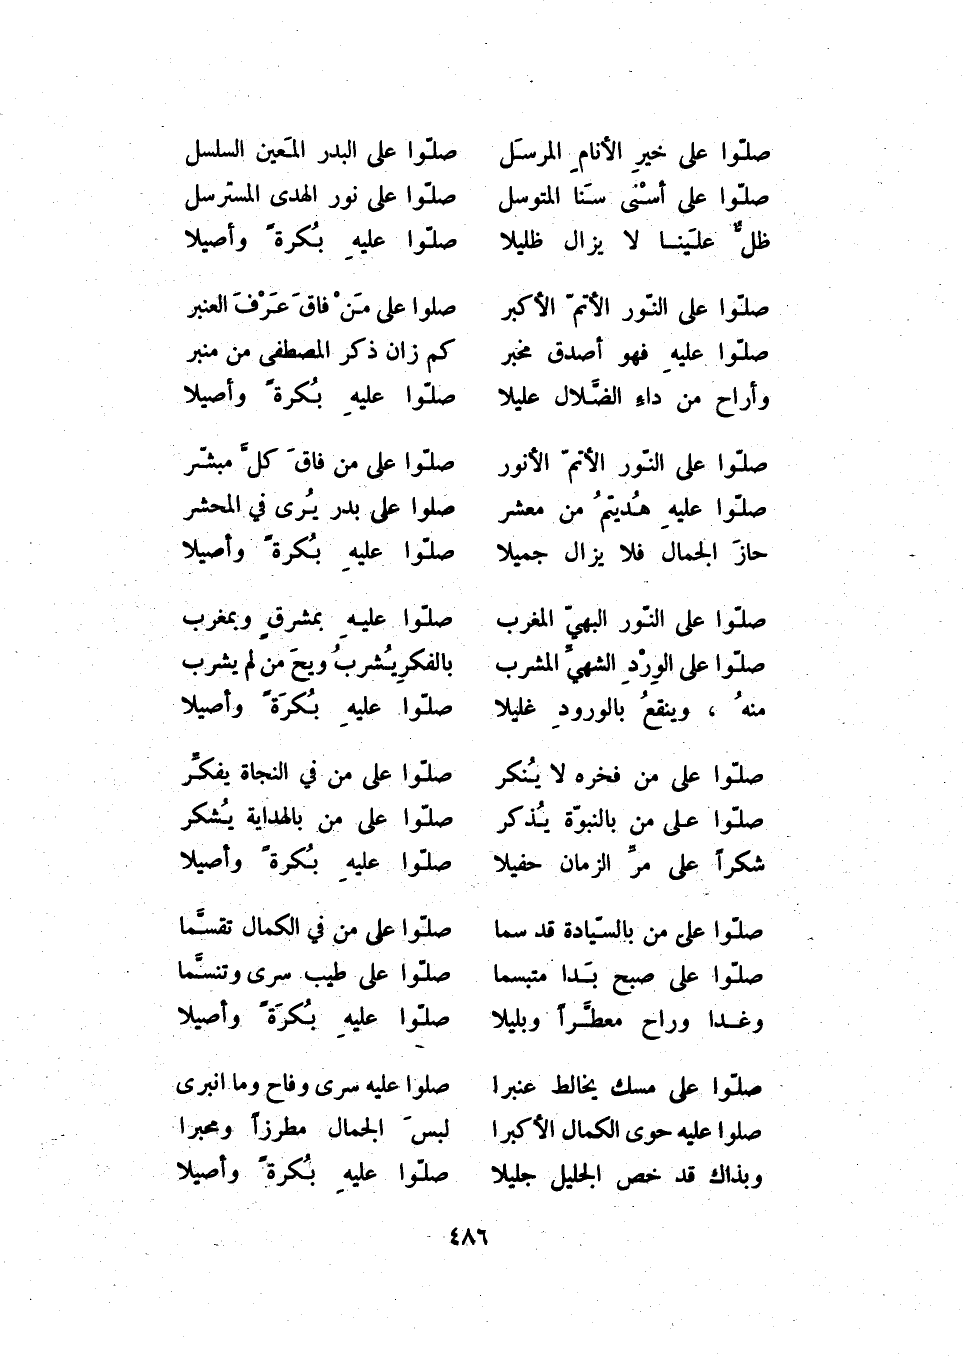 صلّوا على خيرِ الأنامِ المرسَل صلّوا على البدر المَعين السلسل
صلّوا على أسْنَى سَنا المتوسل صلّوا على نور الهدى المسترسل
ظلٌّ علَينا لا يزال ظليلا صلّوا عليهِ بُكرةً وأصيلا
صلّوا على النّور الأتمّ الأكبر صلوا على مَنْ فاقَ عَرْفَ العنبر
صلّوا عليهِ فهو أصدق مخبر كم زان ذكر المصطفى من منبر
وأراح من داءِ الضَّلال عليلا صلّوا عليهِ بُكرةً وأصيلا
صلّوا على النّور الأتمّ الأنور صلّوا على من فاقَ كلَّ مبشّر
صلّوا عليهِ هُديتمُ من معشر صلوا على بدر يُرى في المحشر
حازَ الجمال فلا يزال جميلا صلّوا عليهِ بُكرةً وأصيلا
صلّوا على النّور البهيّ المغرب صلّوا عليهِ بمشرقٍ وبمغرب
صلّوا على الوِرْدِ الشهيِّ المشرب بالفكرِ يُشربُ ويحَ من لم يشرب
منهُ ، وينقعُ بالورودِ غليلا صلّوا عليهِ بُكرَةً وأصيلا
صلّوا على من فخره لا يُنكر صلّوا على من في النجاة يفكَّر
صلّوا على من بالنبوّة يُذكر صلّوا على من بالهداية يُشكر
شكراً على مرِّ الزمان حفيلا صلّوا عليهِ بُكرةً وأصيلا
صلّوا على من بالسّيادة قد سما صلّوا على من في الكمال تقسَّما
صلّوا على صبح بَدا متبسما صلّوا على طيب سرى وتنسَّما
وغدا وراح معطَّراً وبليلا صلّوا عليهِ بُكرَةً وأصيلا
صلّوا على مسك يخالط عنبرا صلوا عليه سرى وفاح وما انبرى
صلوا عليه حوى الكمال الأكبرا لبسَ الجمال مطرزاً ومحبرا
وبذاك قد خص الجليل جليلا صلّوا عليهِ بُكرةً وأصيلا
٤٨٦